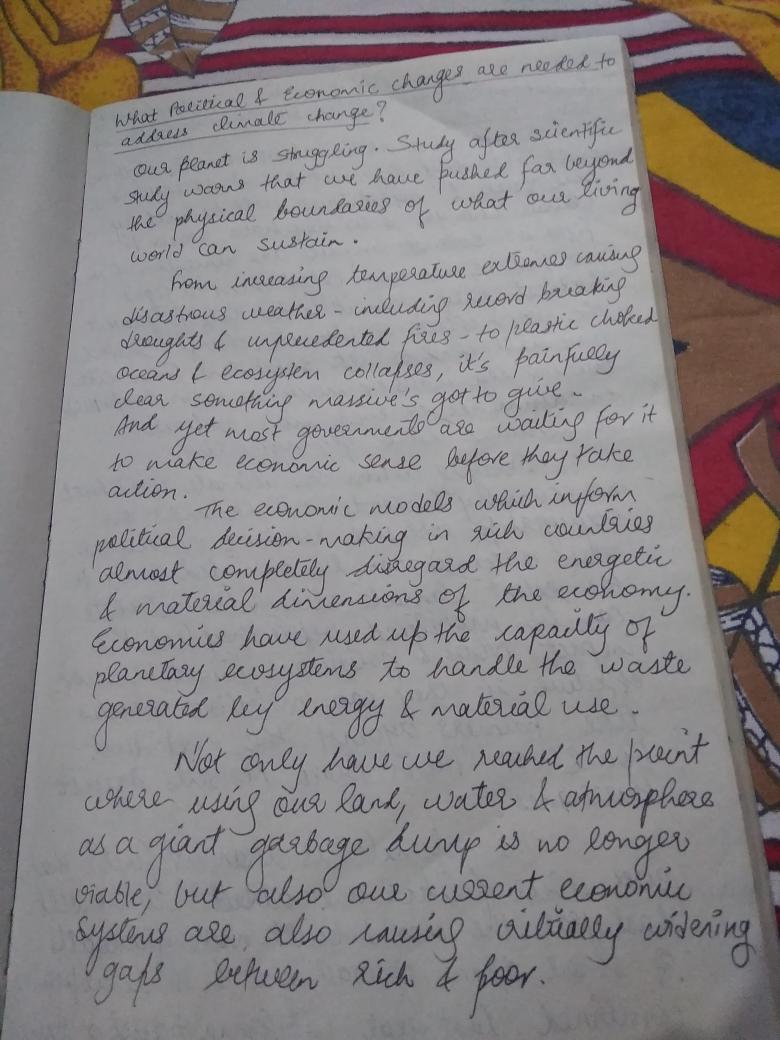 What Political & Economic changes are needed to
address climate change?
Our planet is struggling. Study after scientific
study warns that we have pushed far beyond
the physical boundaries of what our living
world can sustain.
From increasing temperature extremes causing
disastrous weather - including record breaking
droughts & unprecedented fires - to plastic choked
oceans & ecosystem collapses, it's painfully
clear something massive's got to give.
And yet most governments are waiting for it
to make economic sense before they take
action.
The economic models which inform
political decision-making in rich countries
almost completely disregard the energetic
& material dimensions of the economy.
Economies have used up the capacity of
planetary ecosystems to handle the waste
generated by energy & material use.
Not only have we reached the point
where using our land, water & atmosphere
as a giant garbage dump is no longer
viable, but also our current economic
systems are also causing critically widening
gaps between rich & poor.